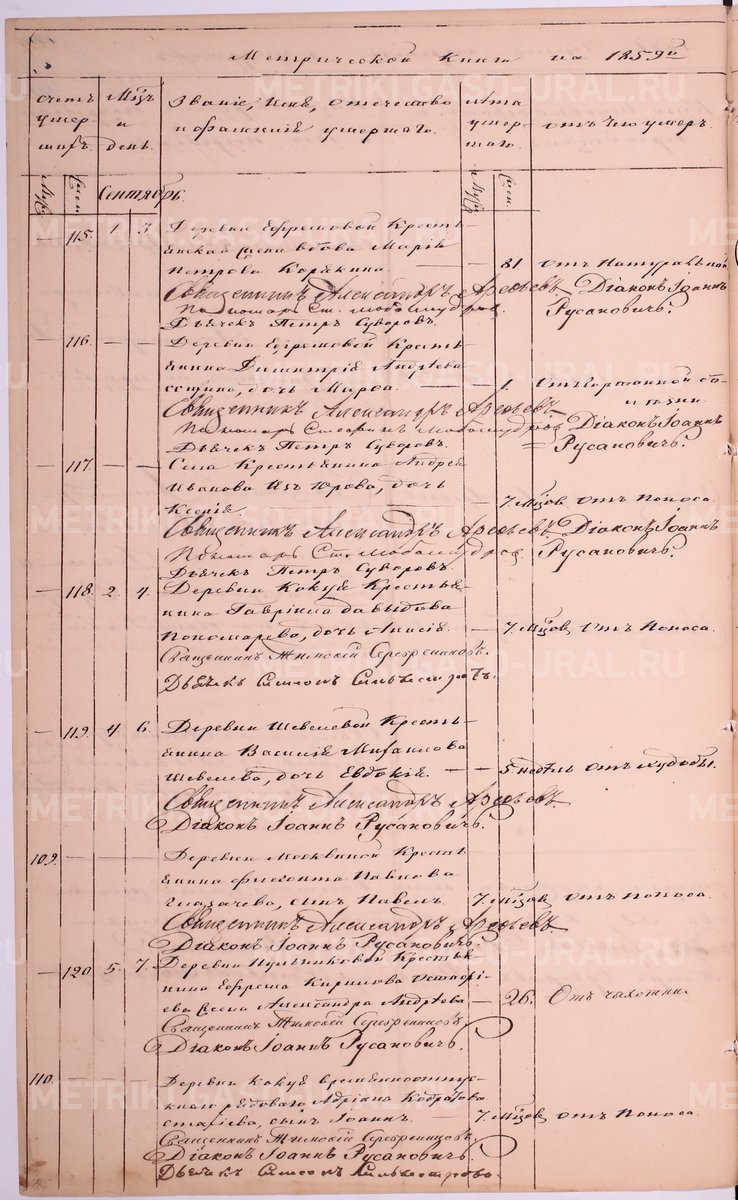 Метрической книги на 1859й
счетъ умершихъ.
Мцъ и день.
Званіе, Имя, отечество и фамиліи умершаго.
Лѣта умершаго.
Отъ чего умеръ.
Муж. Жен. Сентябрь. Муж. Жен.
— 115. 1 3. Деревни Ефремовой Кресть-
янская жена вдова Марія
Петрова Карякина — — 81 отъ Натуральной
Священникъ Александръ Арефьевъ Діаконъ Іоаннъ
Пономарь Ст. Мобомудров Русановичъ.
Дьячекъ Петръ Суворовъ.
— 116. — — Деревни Ефремовой Кресть-
янина Димитрія Андрѣева
дочь Марѳа. — — 1. отъ бо-
лѣзни.
Священникъ Александръ Арефьевъ Діаконъ Іоаннъ
Пономарь Стефанъ Мобомудров Русановичъ.
Дьячекъ Петръ Суворовъ.
— 117. — — Села Крестьянина Андрея
Иванова дочь
Ксенія. — 7. Мцов. отъ поноса.
Священникъ Александръ Арефьевъ Діаконъ Іоаннъ
Пономарь Ст. Мобомудров Русановичъ.
Дьячекъ Петръ Суворовъ.
— 118. 2. 4. Деревни Кокуя Крестья-
нина Гавріила Давыдова
Пономарева, дочь Анисія. — 7. Мцов. Отъ Поноса.
Священникъ Зиновій Серебренниковъ.
Дьячекъ Симеонъ Сильвестровъ.
— 119. 4 6. Деревни Шевелевой Кресть-
янина Василія Михаилова
Шевелева, дочь Евдокія. — — 5 недѣль отъ худобы.
Священникъ Александръ Арефьевъ
Діаконъ Іоаннъ Русановичъ.
109. — — — Деревни Москвиной Кресть-
янина Филиппа Павлова
Глазачева, сынъ Павелъ. 7. Мцов. отъ поноса.
Священникъ Александръ Арефьевъ
Діаконъ Іоаннъ Русановичъ.
— 120. 5. 7. Деревни Крестья-
нина Ефрема Кирилова
жена Александра Андрѣева — 26. Отъ чахотки.
Священникъ Зиновій Серебренниковъ
Діаконъ Іоаннъ Русановичъ.
110. — — — Деревни Кокуя временноотпус-
кнаго рядоваго Адріана Кодратова
сынъ Іоаннъ. 7. Мцов. отъ поноса.
Священникъ Зиновій Серебренниковъ.
Діаконъ Іоаннъ Русановичъ.
Дьячекъ Симеонъ Сильвестровъ.
METRIKI.GASO-URAL.RU